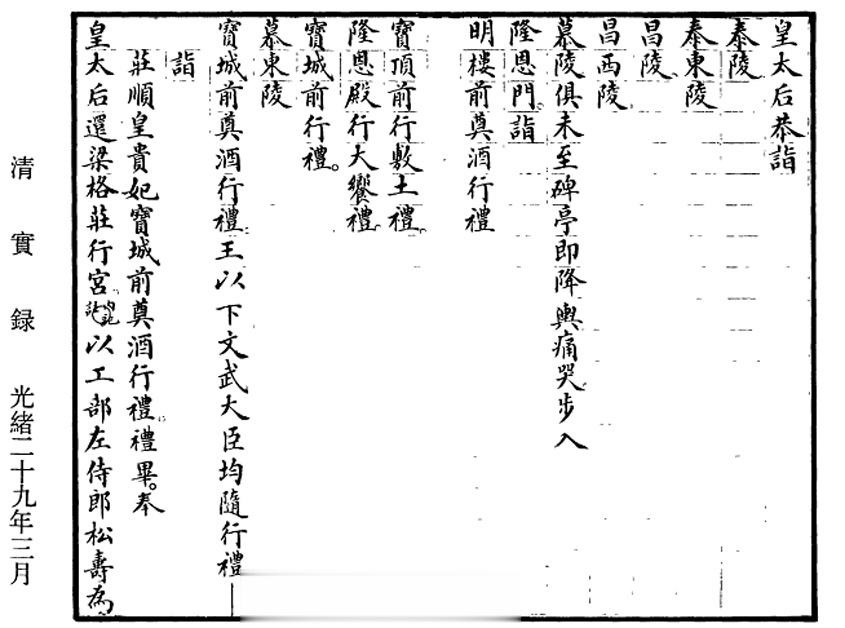 皇太后恭詣
泰陵
泰東陵
昌陵
昌西陵
慕陵俱未至碑亭即降輿痛哭步入
隆恩門。詣
明樓前奠酒行禮
寶頂前行敷土禮。
隆恩殿行大饗禮。
寶城前行禮。
慕東陵
寶城前奠酒行禮。王以下文武大臣均隨行禮
詣
莊順皇貴妃寶城前奠酒行禮。禮畢。奉
皇太后還梁格莊行宮。以工部左侍郎松壽為
清實録 光緒二十九年三月